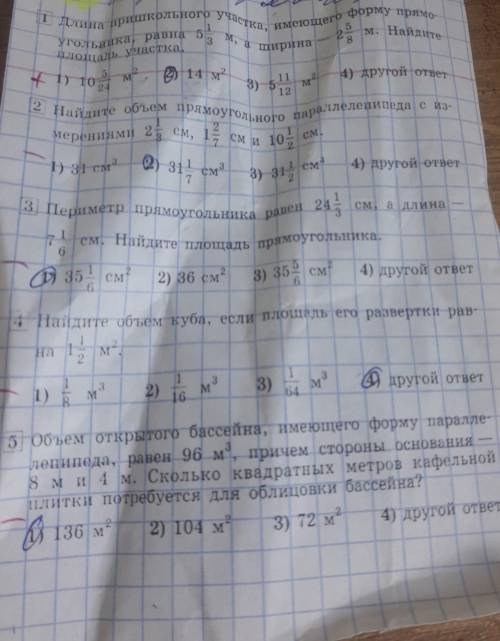 1 Длина пришкольного участка, имеющего форму прямо-
угольника, равна 5 1/3 м, а ширина 2 5/8 м. Найдите
площадь участка.
+ 1) 10 5/24 м² 2) 14 м² 3) 5 11/12 м² 4) другой ответ
2 Найдите объем прямоугольного параллелепипеда с из-
мерениями 2 1/3 см, 1 2/7 см и 10 1/2 см.
1) 31 см³ 2) 31 1/7 см³ 3) 31 1/2 см³ 4) другой ответ
3 Периметр прямоугольника равен 24 1/3 см, а длина —
7 1/6 см. Найдите площадь прямоугольника.
1) 35 1/6 см² 2) 36 см² 3) 35 5/6 см² 4) другой ответ
4 Найдите объем куба, если площадь его развертки рав-
на 1 1/2 м².
1) 1/8 м³ 2) 1/16 м³ 3) 1/64 м³ 4) другой ответ
5 Объем открытого бассейна, имеющего форму паралле-
лепипеда, равен 96 м³, причем стороны основания —
8 м и 4 м. Сколько квадратных метров кафельной
плитки потребуется для облицовки бассейна?
1) 136 м² 2) 104 м² 3) 72 м² 4) другой ответ